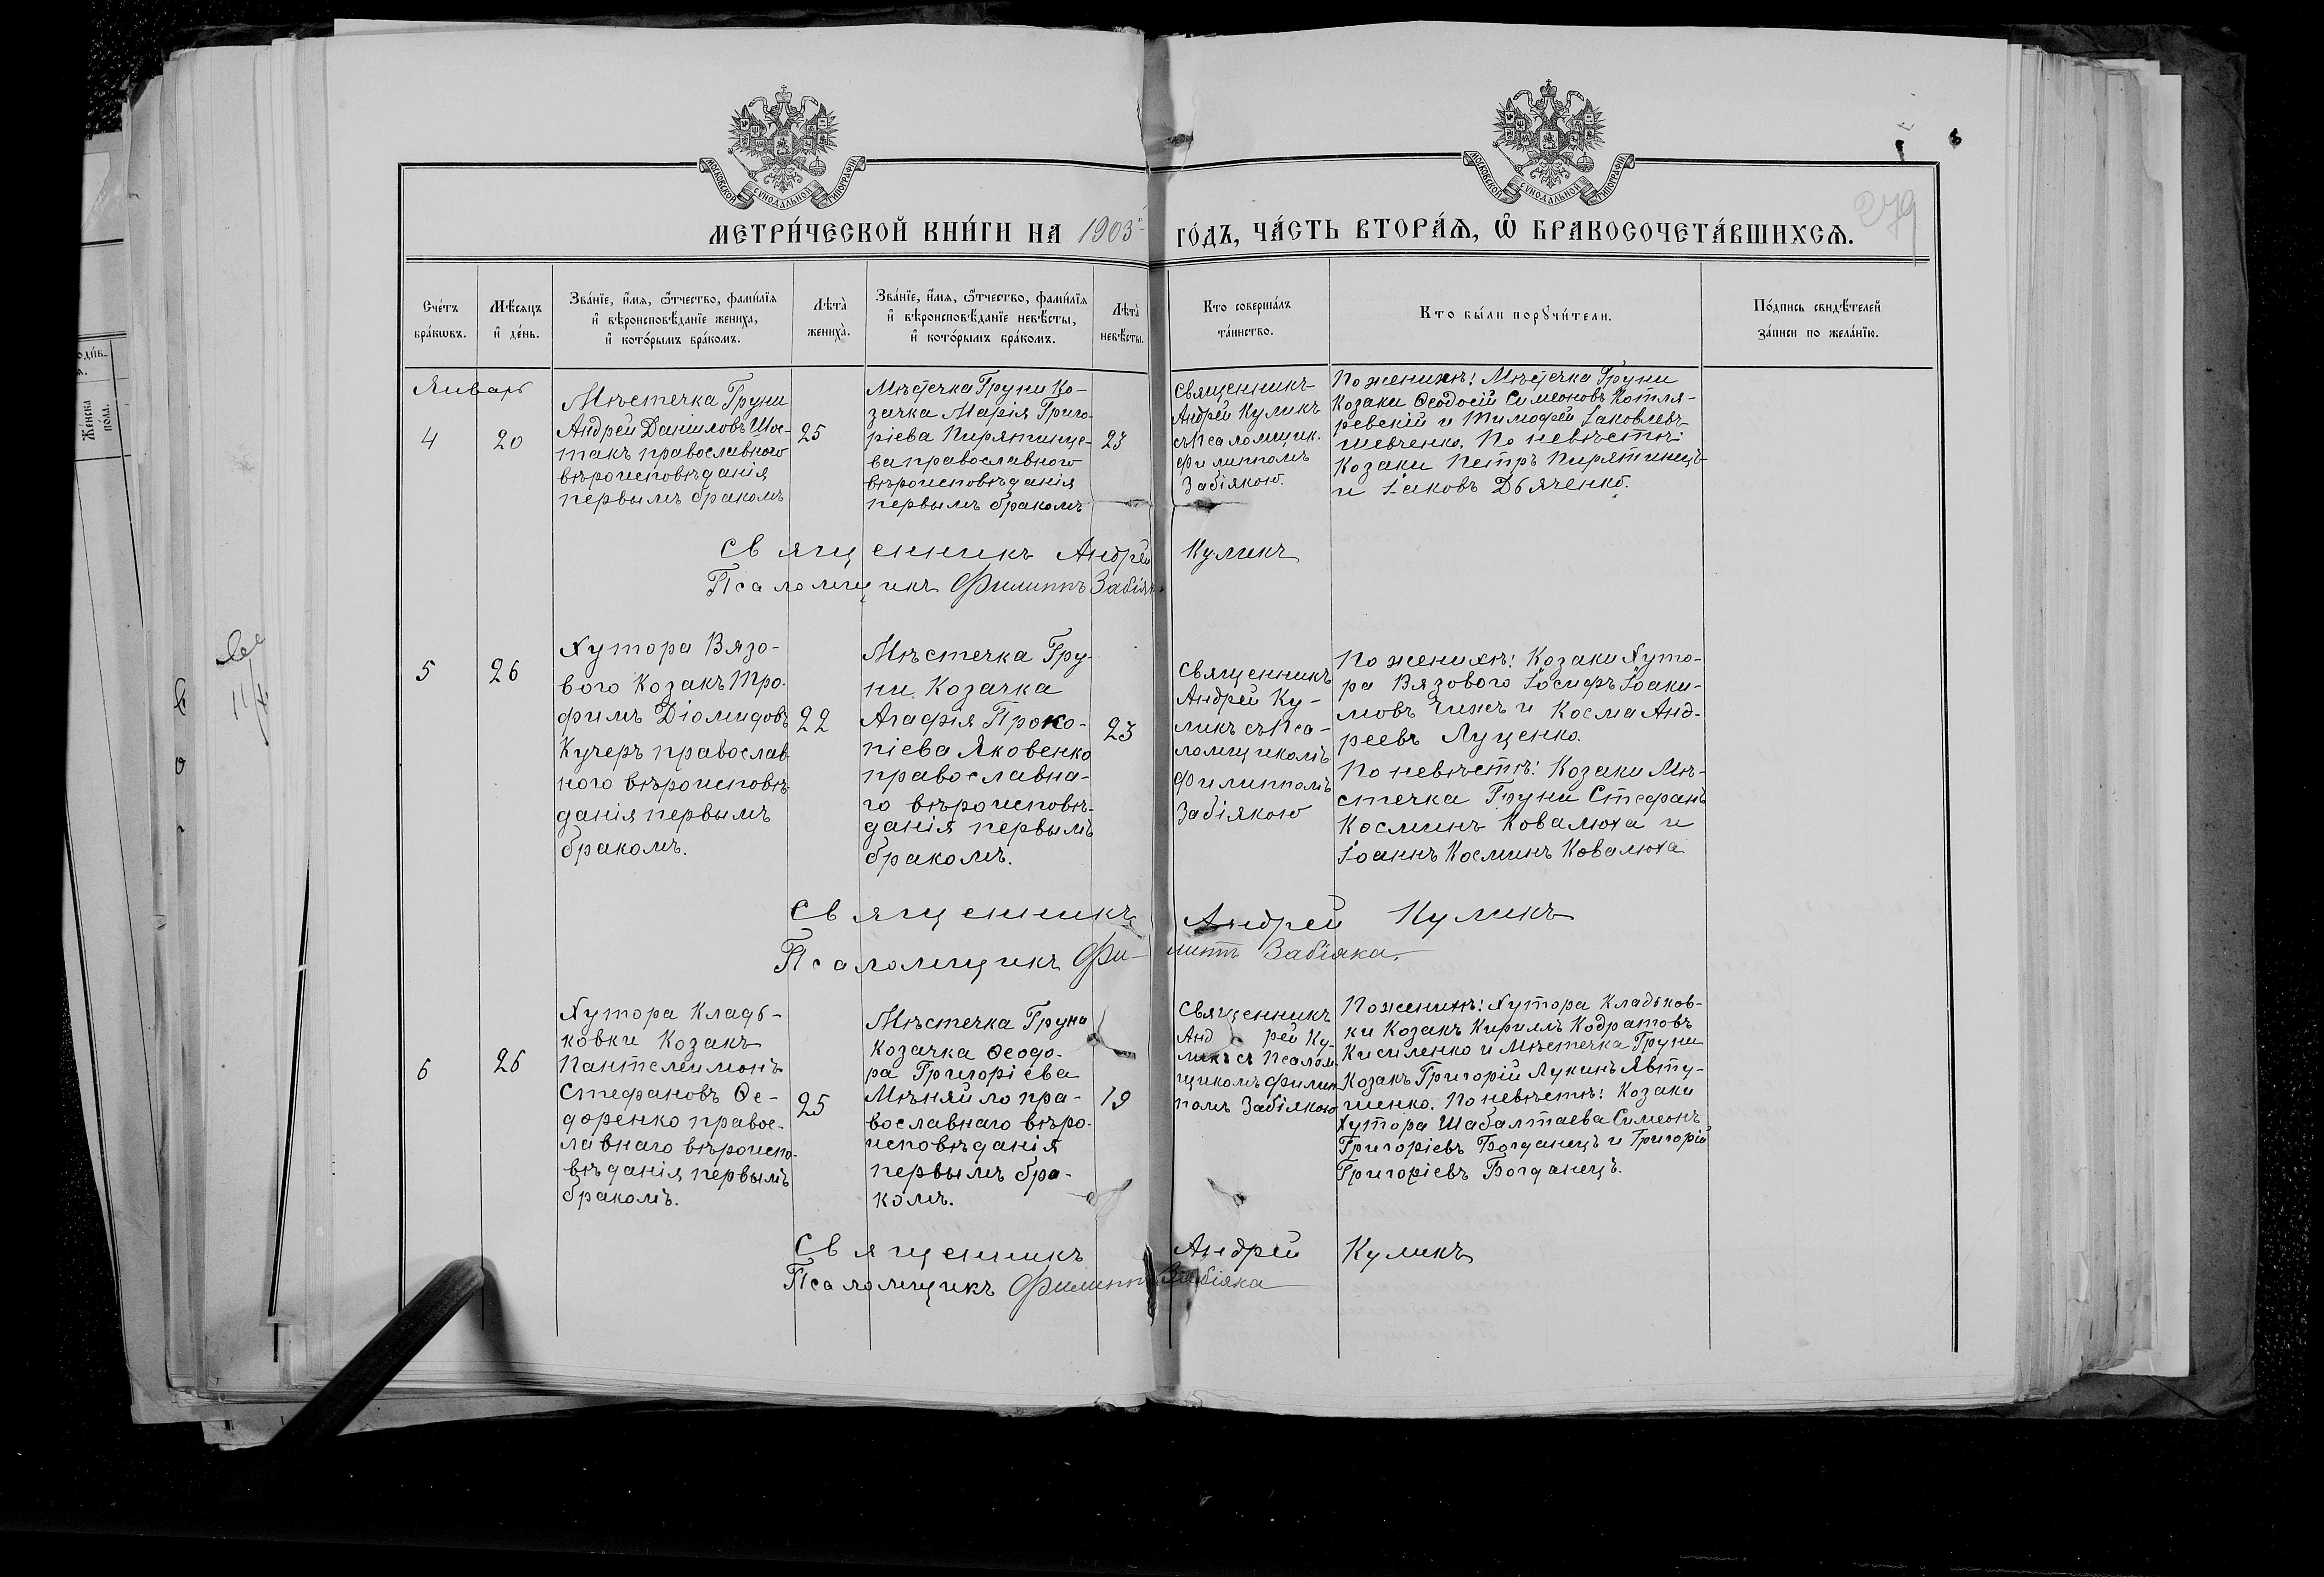 МОСКОВСКОЙ СѴНОДАЛЬНОЙ ТИПОГРАФІИ
МОСКОВСКОЙ СѴНОДАЛЬНОЙ ТИПОГРАФІИ
279
МЕТРИ́ЧЕСКОЙ КНИ́ГИ НА 1903й ГО́ДЪ, ЧА́СТЬ ВТОРА́Ѧ, Ѡ҆ БРАКОСОЧЕТА́ВШИХСѦ.
Сче́тъ бра́кѡвъ.
Мѣ́сѧцъ и҆ де́нь.
Зва́нїе, и҆́мѧ, ѻ҆́тчество, фамѝлїѧ
и҆ вѣроисповѣ́данїе жениха̀,
и҆ кото́рымъ бра́комъ.
Лѣта̀ жениха̀.
Зва́нїе, и҆́мѧ, ѻ҆́тчество, фамѝлїѧ
и҆ вѣроисповѣ́данїе невѣ́сты,
и҆ кото́рымъ бра́комъ.
Лѣта̀ невѣ́сты.
Кто соверша́лъ
та́инство.
Кто бы́ли порꙋчи́тели.
По́дпись свидѣ́телей
за́писи по жела́нїю.
Январь
4
20
Мѣстечка Груни
Андрей Даніиловъ Шос-
такъ православного
вѣроисповѣданія
первымъ бракомъ
25
Мѣстечка Груни Ко-
зачка Марія Григо-
ріева Пирятинце-
ва православного
вѣроисповѣданія
первымъ бракомъ
23
Священникъ
Андрей Куликъ
съ Псаломщик.
Филиппомъ
Забіякою.
По женихѣ: Мѣстечка Груни
Козаки Ѳеодосій Симеоновъ Котля-
ревскій и Тимофей Іаковлевъ
Шевченко. По невѣстѣ:
Козаки Петръ Пирятинецъ
и Іаковъ Дьяченко.
Священникъ Андрей Куликъ
Псаломщикъ Филиппъ Забіяк
5
26
Хутора Вязо-
вого Козакъ Тро-
фимъ Діомидовъ
Кучеръ православ
ного вѣроисповѣ
данія первымъ
бракомъ.
22
Мѣстечка Гру-
ни Козачка
Агафія Проко-
піева Яковенко
православна-
го вѣроисповѣ-
данія первымъ
бракомъ.
23
Священникъ
Андрей Ку-
ликъ съ Пса-
ломщикомъ
Филиппомъ
Забіякою
По женихѣ: Козаки Хуто-
ра Вязового Іосифъ Іоаки-
мовъ Чижъ и Косма Анд-
реевъ Луценко.
По невѣстѣ: Козаки Мѣ-
стечка Груни Стефанъ
Косминъ Ковалюха и
Іоаннъ Косминъ Ковалюха
Священникъ Андрей Куликъ
Псаломщикъ Фи-липпъ Забіяка.
6
26
Хутора Кладь-
ковки Козакъ
Пантелеимонъ
Стефановъ Ѳе-
доренко правос-
лавнаго вѣроиспо-
вѣданія первымъ
бракомъ.
25
Мѣстечка Груни
Козачка Ѳеодо-
ра Григоріева
Мѣняйло пра-
вославнаго вѣро-
исповѣданія
первымъ бра-
комъ.
19
Священникъ
Андрей Ку-
ликъ съ Псалом-
щикомъ Филип-
помъ Забіякою
По женихѣ: Хутора Кладьков-
ки Козакъ Кириллъ Кодратовъ
Кисиленко и Мѣстечка Груни
Козакъ Григорій Лукинъ Явту-
шенко. По невѣстѣ: Козаки
Хутора Шабалтаева Симеонъ
Григоріевъ Богданецъ и Григорій
Григоріевъ Богданецъ.
Священникъ Андрей Куликъ
Псаломщикъ Филиппъ Забіяка